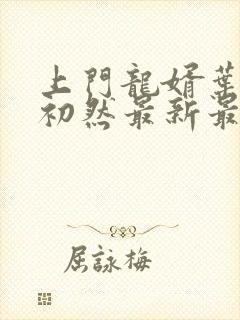 上門龍婿葉
初然最新最
屈詠梅